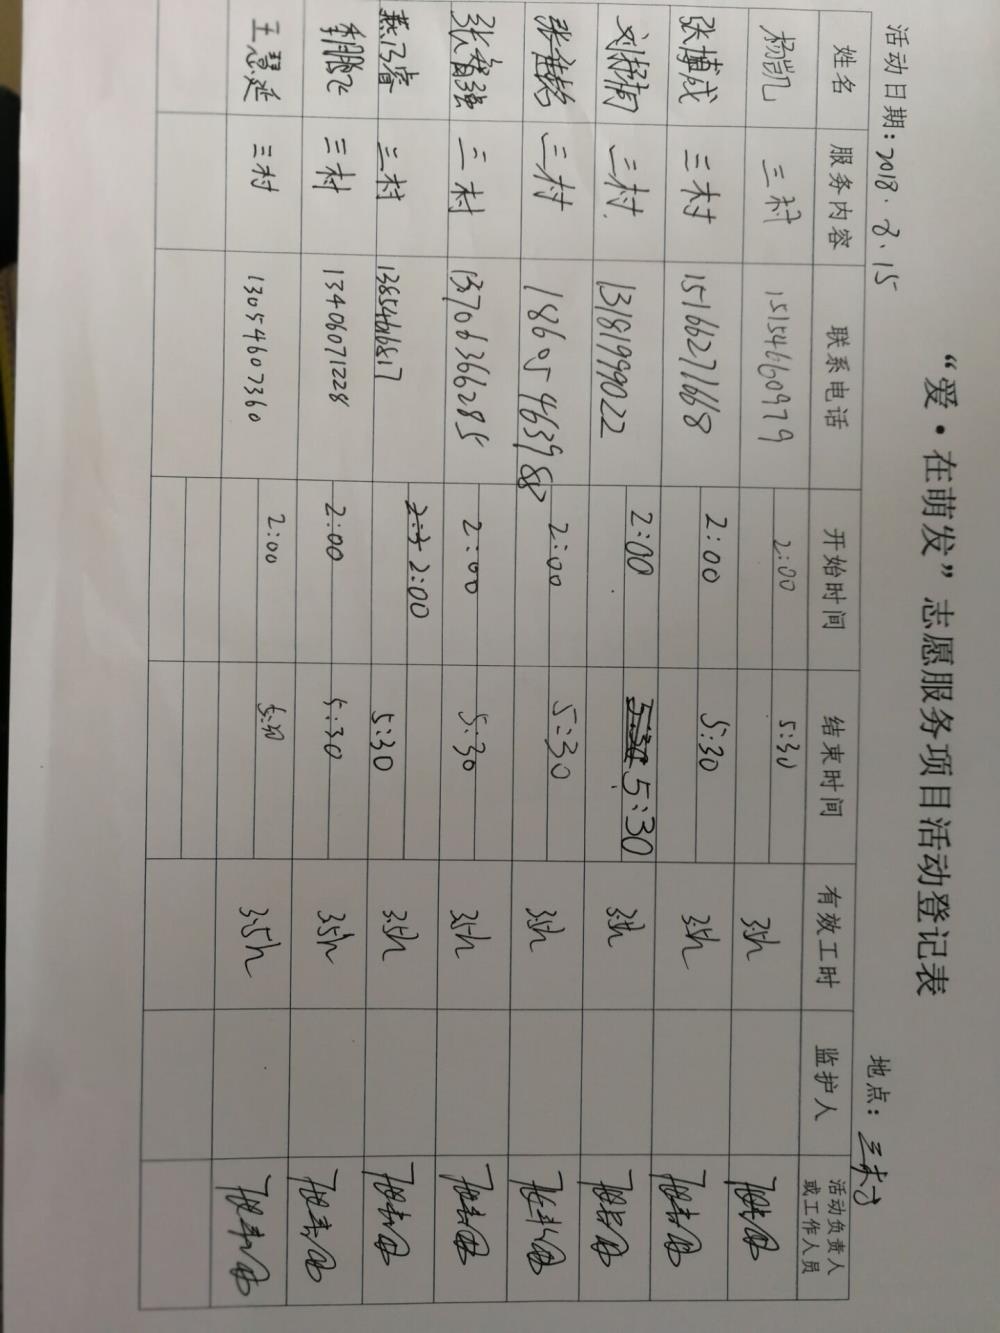 “爱·在萌发”志愿服务项目活动登记表
活动日期：2018.8.15 地点：三村
姓名 服务内容 联系电话 开始时间 结束时间 有效工时 监护人 活动负责人或工作人员
杨凯 三村 15154660979 2:00 5:30 3.5h
张博成 三村 15166271668 2:00 5:30 3.5h
三村 13181999022 2:00 5:30 5:30 3.5h
三村 18605463988 2:00 5:30 3.5h
三村 13706366285 2:00 5:30 3.5h
燕乃睿 三村 13854616817 2:00 5:30 3.5h
季鹏飞 三村 13406071228 2:00 5:30 3.5h
王慧延 三村 13054607360 2:00 5:30 3.5h